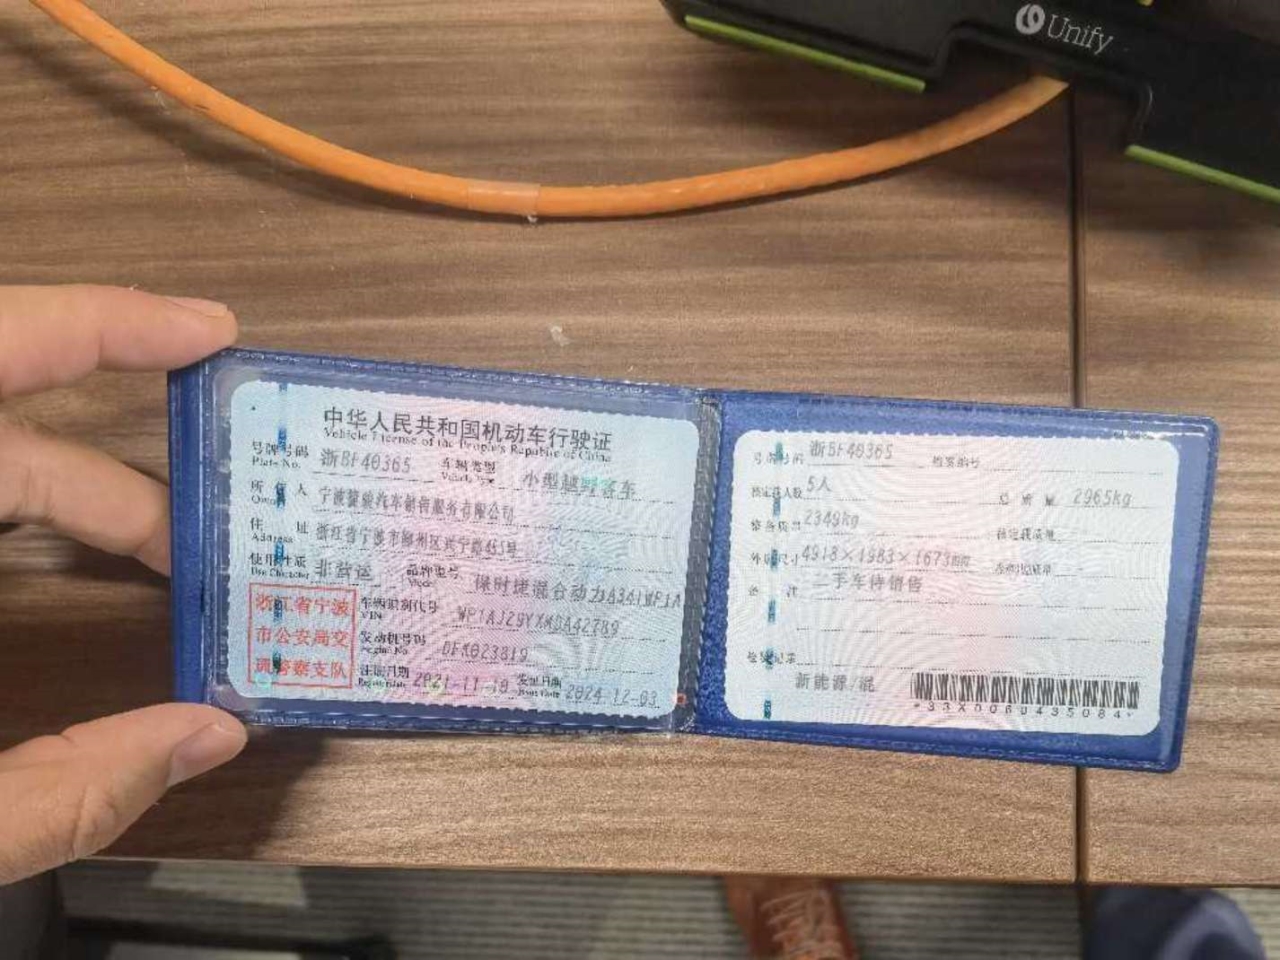 Unify
中华人民共和国机动车行驶证
Vehicle License of the People's Republic of China
号牌号码 浙BF40365 车辆类型 小型越野客车
Plate No. Vehicle Type
所有人 宁波 汽车销售服务有限公司
Owner
住址 浙江省宁波市鄞州区兴宁路 号
Address
使用性质 非营运 品牌型号 保时捷混合动力
Use Character Model
浙江省宁波
市公安局交
通警察支队
车辆识别代号
VIN
发动机号码
Engine No.
注册日期 2021-11-10 发证日期 2024-12-03
Register Date Issue Date
号牌号码 浙BF40365 档案编号
核定载人数 5人 总质量 2965kg
整备质量 2349kg 核定载质量
外廓尺寸 4918×1983×1673mm 准牵引总质量
备注 二手车待销售
检验记录
新能源/混
*33X0060435084*